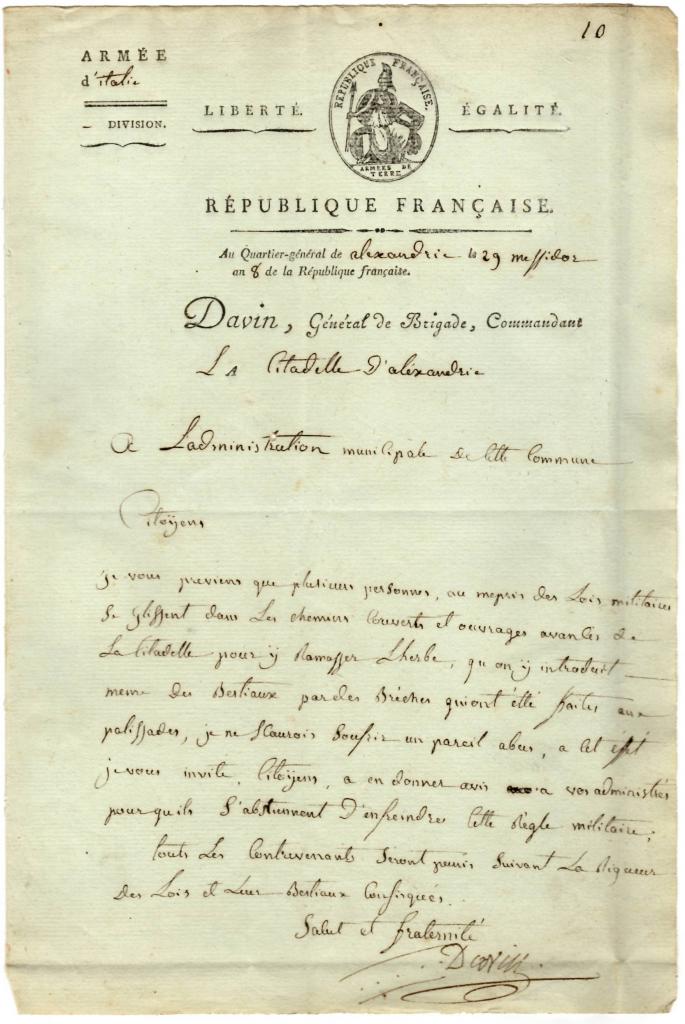 10
ARMÉE
d'italie
– DIVISION.
LIBERTÉ.
RÉPUBLIQUE FRANÇAISE.
ARMÉES DE
TERRE
ÉGALITÉ.
RÉPUBLIQUE FRANÇAISE.
Au Quartier-général de alexandrie le 29 messidor
an 8 de la République française.
Davin, Général de Brigade, Commandant
La Citadelle D'aléxandrie
A Ladministration municipale de Cette Commune
Citoÿens
je vous previens que plusieurs personnes, au mepris des Lois militaires
Se glissent dans Les chemins Couverts et ouvrages avancés de
La Citadelle pour ÿ Ramasser Lherbe, qu'on ÿ introduit
meme des Bestiaux par des Brêches qui ont étté faites aux
palissades, je ne Scaurois Soufrir un pareil abus, a Cet éfét
je vous invite, Citoÿens, a en donner avis a vos administrés
pour quils S'abstiennent D'enfreindre Cette Règle militaire;
touts Les Contrevenants Seront punis Suivant La Rigueur
Des Lois et Leur Bestiaux Confisqués.
Salut et fraternité
Davin